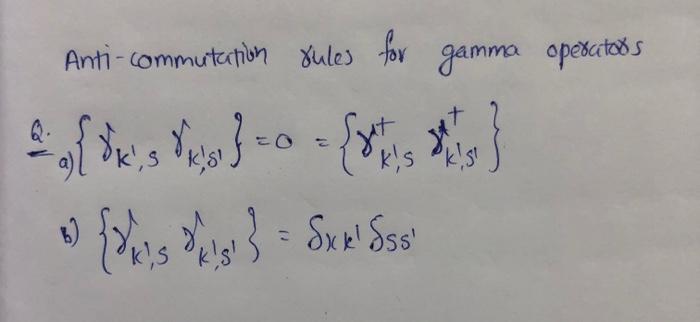 Anti-commutation rules for gamma operators
Q. a) {γ̂k',s γ̂k',s'} = 0 = {γ̂†k',s γ̂†k',s'}
b) {γ̂k',s γ̂k',s'} = δxk' δss'